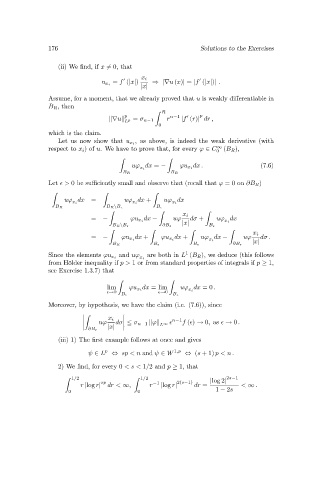 176 Solutions to the Exercises
(ii) We find, if x ≠ 0, that
u_{x_i} = f′(|x|) x_i/|x| ⇒ |∇u(x)| = |f′(|x|)| .
Assume, for a moment, that we already proved that u is weakly differentiable in
B_R, then
||∇u||^p_{L^p} = σ_{n−1} ∫_0^R r^{n−1} |f′(r)|^p dr ,
which is the claim.
Let us now show that u_{x_i}, as above, is indeed the weak derivative (with
respect to x_i) of u. We have to prove that, for every φ ∈ C_0^∞(B_R),
∫_{B_R} uφ_{x_i} dx = − ∫_{B_R} φu_{x_i} dx . (7.6)
Let ϵ > 0 be sufficiently small and observe that (recall that φ = 0 on ∂B_R)
∫_{B_R} uφ_{x_i} dx = ∫_{B_R\B_ϵ} uφ_{x_i} dx + ∫_{B_ϵ} uφ_{x_i} dx
= − ∫_{B_R\B_ϵ} φu_{x_i} dx − ∫_{∂B_ϵ} uφ x_i/|x| dσ + ∫_{B_ϵ} uφ_{x_i} dx
= − ∫_{B_R} φu_{x_i} dx + ∫_{B_ϵ} φu_{x_i} dx + ∫_{B_ϵ} uφ_{x_i} dx − ∫_{∂B_ϵ} uφ x_i/|x| dσ .
Since the elements φu_{x_i} and uφ_{x_i} are both in L^1(B_R), we deduce (this follows
from Hölder inequality if p > 1 or from standard properties of integrals if p ≥ 1,
see Exercise 1.3.7) that
lim_{ϵ→0} ∫_{B_ϵ} φu_{x_i} dx = lim_{ϵ→0} ∫_{B_ϵ} uφ_{x_i} dx = 0 .
Moreover, by hypothesis, we have the claim (i.e. (7.6)), since
|∫_{∂B_ϵ} uφ x_i/|x| dσ| ≤ σ_{n−1} ||φ||_{L^∞} ϵ^{n−1} f(ϵ) → 0, as ϵ → 0 .
(iii) 1) The first example follows at once and gives
ψ ∈ L^p ⇔ sp < n and ψ ∈ W^{1,p} ⇔ (s + 1) p < n .
2) We find, for every 0 < s < 1/2 and p ≥ 1, that
∫_0^{1/2} r |log r|^{sp} dr < ∞, ∫_0^{1/2} r^{−1} |log r|^{2(s−1)} dr = |log 2|^{2s−1}/(1 − 2s) < ∞ .